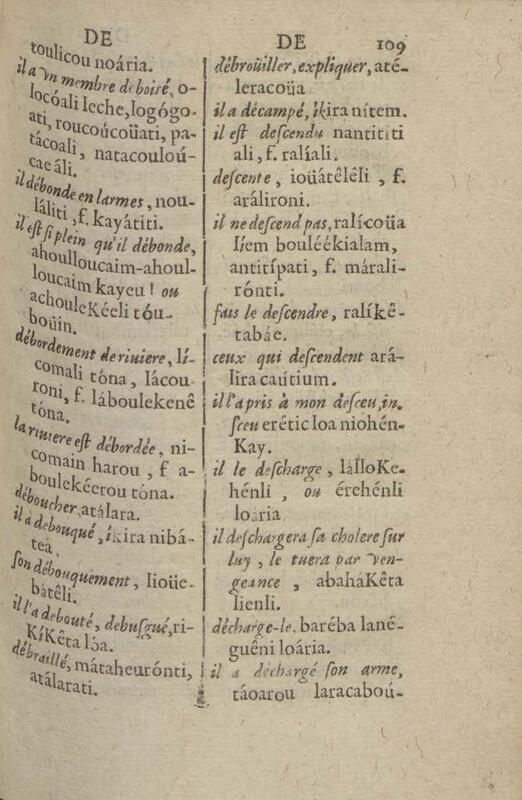 DE
toulicou noária.
il a vn membre de boiré, o-
locóali leche, logógo-
ati, roucoúcoüati, pa-
tácoali, natacouloú-
cae áli.
il débonde en larmes, nou-
láliti, f. kayátiti.
il est si plein qu'il débonde,
ahoulloucaim-ahoul-
loucaim kayeu! ou
achouleKéeli tóu-
boüin.
débordement de riuiere, lí-
comali tóna, lácou
roni, f. láboulekenê
tóna.
la riuiere est débordée, ni-
comain harou, f a-
boulekéerou tóna.
déboucher, atálara.
il a débouqué, íkira nibá-
tea,
son débouquement, lioüe-
bátêli.
il l'a debouté, debusqué, ri-
KíKêta lóa.
débraillé, mátaheurónti,
atálarati.
DE 109
débroüiller, expliquer, até-
leracoüa
il a décampé, íkira nitem.
il est descendu nantititi
ali, f. ralíali.
descente, ioüátêlêli, f.
arálironi.
il ne descend pas, ralícoüa
líem bouléékialam,
antitípati, f. márali-
rónti.
fais le descendre, ralíkê-
tabáe.
ceux qui descendent ará-
lira caútium.
il l'apris à mon desceu, in-
sceu erétic loa niohén-
Kay.
il le descharge, lálloKe-
hénli, ou érehénli
loária
il deschargera sa cholere sur
luy, le tuera par ven-
geance, abaháKêta
lienli.
décharge-le, baréba lané-
guêni loária.
il a déchargé son arme,
táoarou laracaboú-